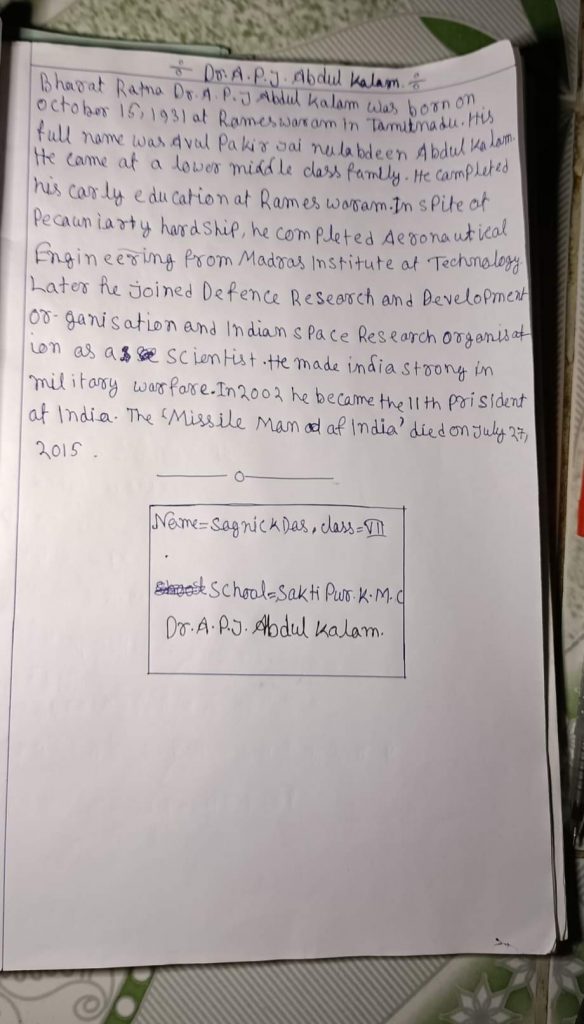 Dr. A. P. J. Abdul Kalam.
Bharat Ratna Dr. A. P. J Abdul Kalam was born on
October 15, 1931 at Rameswaram in Tamilnadu. His
full name was Avul Pakir Jai nulabdeen Abdul Kalam.
He came at a lower middle class family. He campleted
his early education at Rames waram. In spite of
Pecauniarty hardship, he completed Aeronautical
Engineering from Madras Institute at Technology
Later he joined Defence Research and Development
or-ganisation and Indian space Research organisat
ion as a scientist. He made india strong in
military warfare. In 2002 he became the 11th prisident
at India. The 'Missile Man af India' died on July 27,
2015.
Name = Sagnick Das, class = VII
School = Sakti Pur. K. M. C
Dr. A. P. J. Abdul Kalam.